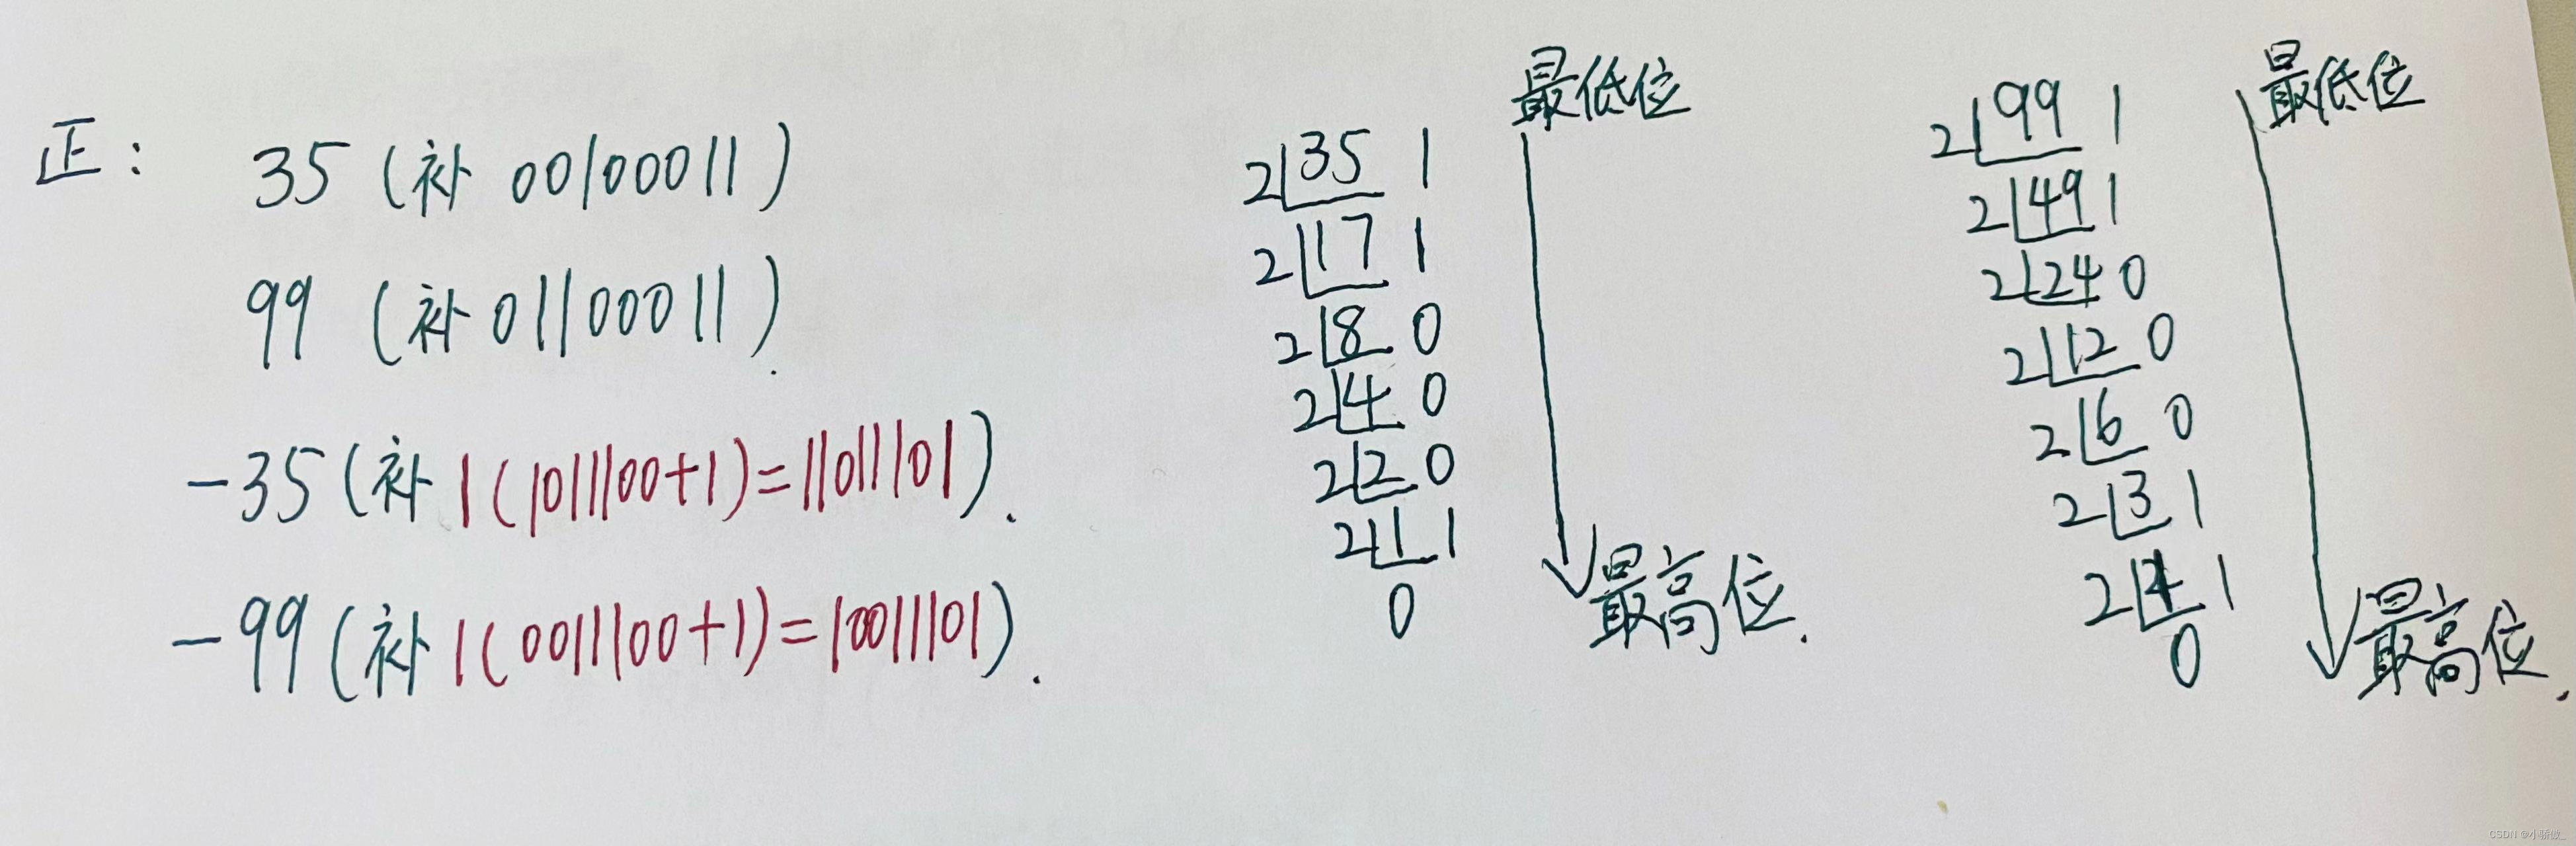 正: 35 (补 00100011)
99 (补 01100011)
-35 (补 1(1011100+1)=11011101).
-99 (补 1(0011100+1)=10011101).
最低位
2 35 1
2 17 1
2 8 0
2 4 0
2 2 0
2 1 1
0
最高位.
最低位
2 99 1
2 49 1
2 24 0
2 12 0
2 6 0
2 3 1
2 1 1
0
最高位.
CSDN @小骄傲_